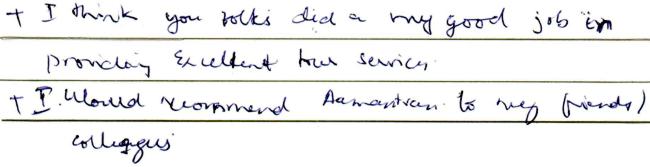 + I think you folks did a very good job in
providing Excellent tour services.
+ I. Would recommend Aamantran to my friends/
colleagues